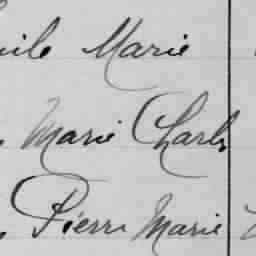 Marie
, Marie Charles
, Pierre Marie